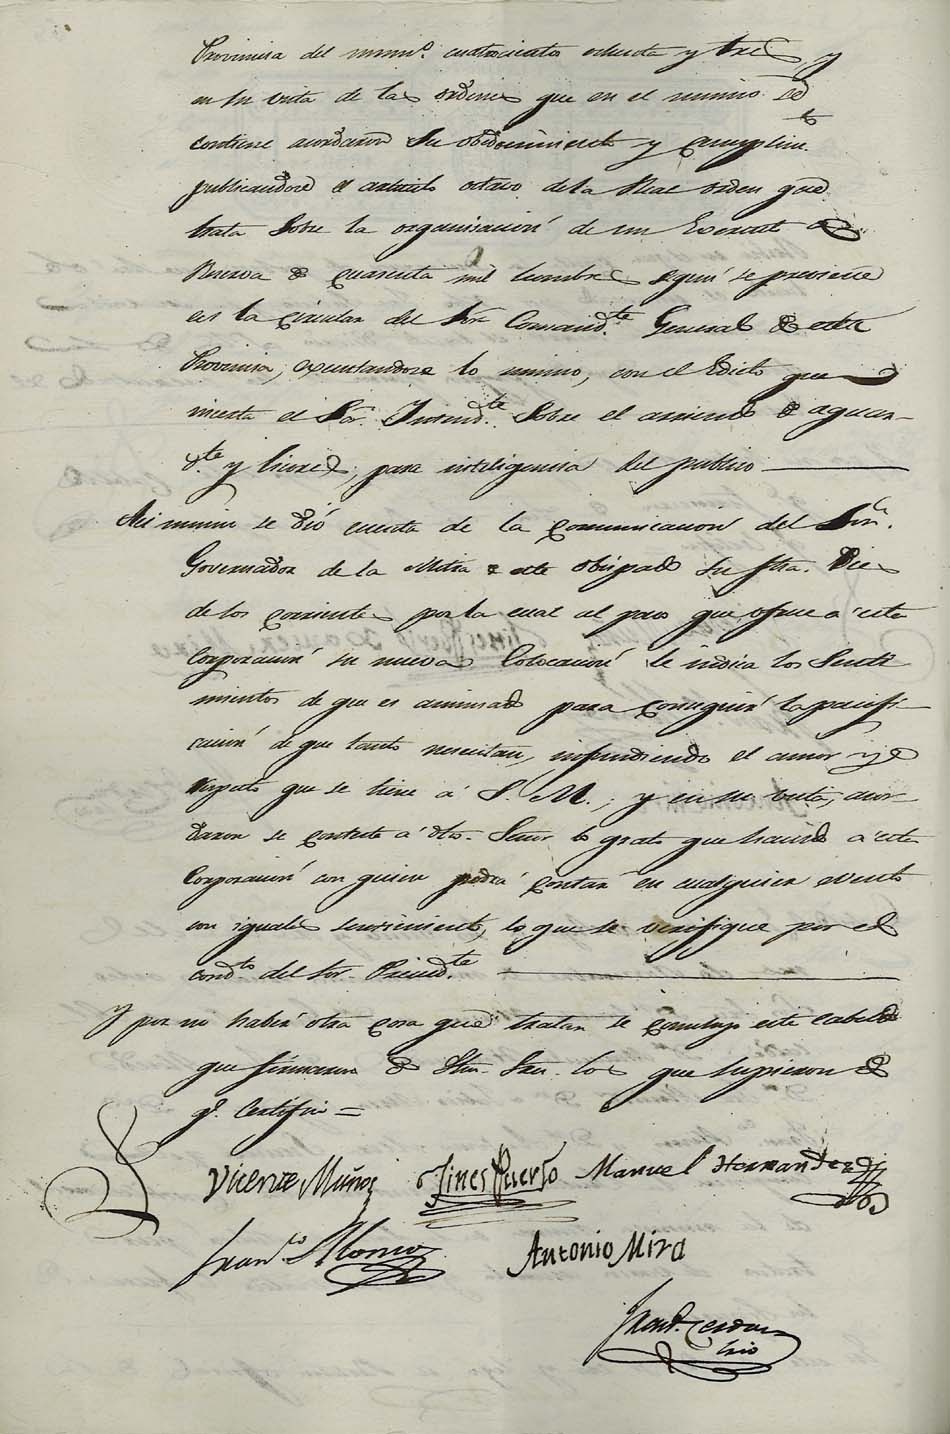 Provinsia del num.º cuatrocientos ochenta y tres, y
en su vista de las ordenes que en el mismo se
contiene acordaron su obedecimiento y cumplim.to
publicandose el articulo octavo de la Real orden que
trata sobre la organisacion de un Exercito de
Reserva de cuarenta mil hombres segun se previene
en la circular del Sor. Comand.te General de esta
Provinsia, executandose lo mismo, con el Edicto que
inserta el Sor. Intend.te sobre el arriendo de aguar-
d.te y licores, para inteligencia del publico
Asi mismo se dió cuenta de la comunicacion del Sor.
Governador de la Mitra de este obispado su fha. Dies
de los corrientes por la cual al paso que ofrece a este
Corporacion su nueva Colocacion le indica los senti
mientos de que es animado para conseguir la pacifi-
cacion de que tanto necesitan, infundiendo el amor y
respeto que se tiene á S. M., y en su vista, acor
daron se conteste a dho. Señor lo grato que ha sido a esta
Corporacion con quien podrá contar en cualquier evento
con iguales sentimientos, lo que se verifique por el
cond.to del Sor. Presid.te
Y por no haber otra cosa que tratar se concluyó este cabildo
que firmaron de Sus. Srs. los que supieron de
q.e Certifico =
Vicente Muñoz Gines Puerto Manuel Hernandez
Fran.co Alonso Antonio Mira
Fran.co Cerdan
Srio